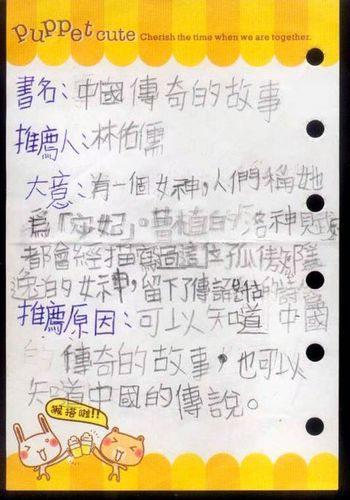 PuPPet cute Cherish the time when we are together.
書名:中國傳奇的故事
推薦人:林佑儒
大意:有一個女神,人們稱她
為「宓妃」。曹植的 洛神
都會經描寫過這位孤傲
的女神,留下了傳
推薦原因:可以知道 中國
的 傳奇的故事,也可以
知道中國的傳說。
猴搭啦!!